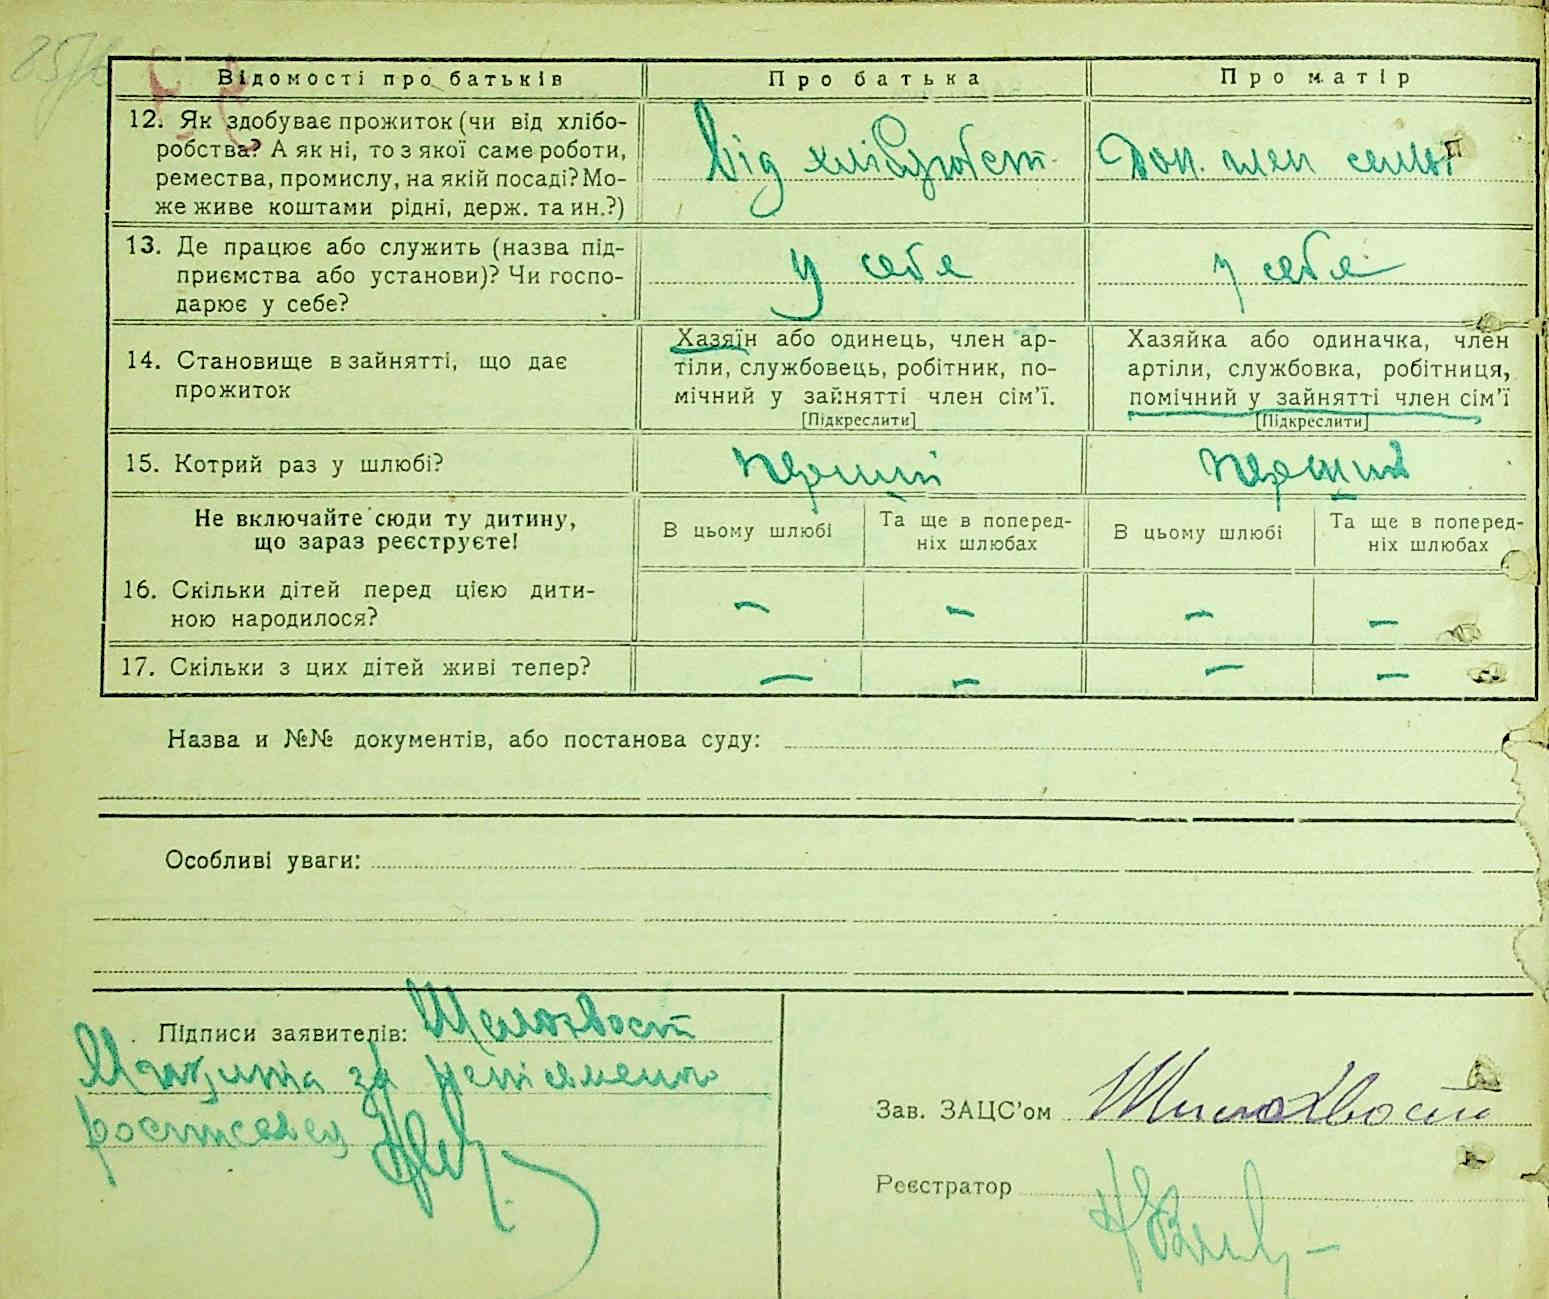 Відомості про батьків Про батька Про матір
12. Як здобуває прожиток (чи від хлібо-
робства? А як ні, то з якої саме роботи,
ремества, промислу, на якій посаді? Мо-
же живе коштами рідні, держ. та ин.?)
Від хліборобст. Доп. член семьї
13. Де працює або служить (назва під-
приємства або установи)? Чи госпо-
дарює у себе?
у себя у себя
14. Становище в зайнятті, що дає
прожиток
Хазяїн або одинець, член ар-
тіли, службовець, робітник, по-
мічний у зайнятті член сім'ї.
[Підкреслити]
Хазяйка або одиначка, член
артіли, службовка, робітниця,
помічний у зайнятті член сім'ї
[Підкреслити]
15. Котрий раз у шлюбі? перший перший
Не включайте сюди ту дитину,
що зараз реєструєте!
В цьому шлюбі
Та ще в поперед-
ніх шлюбах
В цьому шлюбі
Та ще в поперед-
ніх шлюбах
16. Скільки дітей перед цією дити-
ною народилося?
– – – –
17. Скільки з цих дітей живі тепер? – – – –
Назва и №№ документів, або постанова суду:
Особливі уваги:
Підписи заявителів: Шелохвост
за
Зав. ЗАЦС'ом Шилохвост
Реєстратор